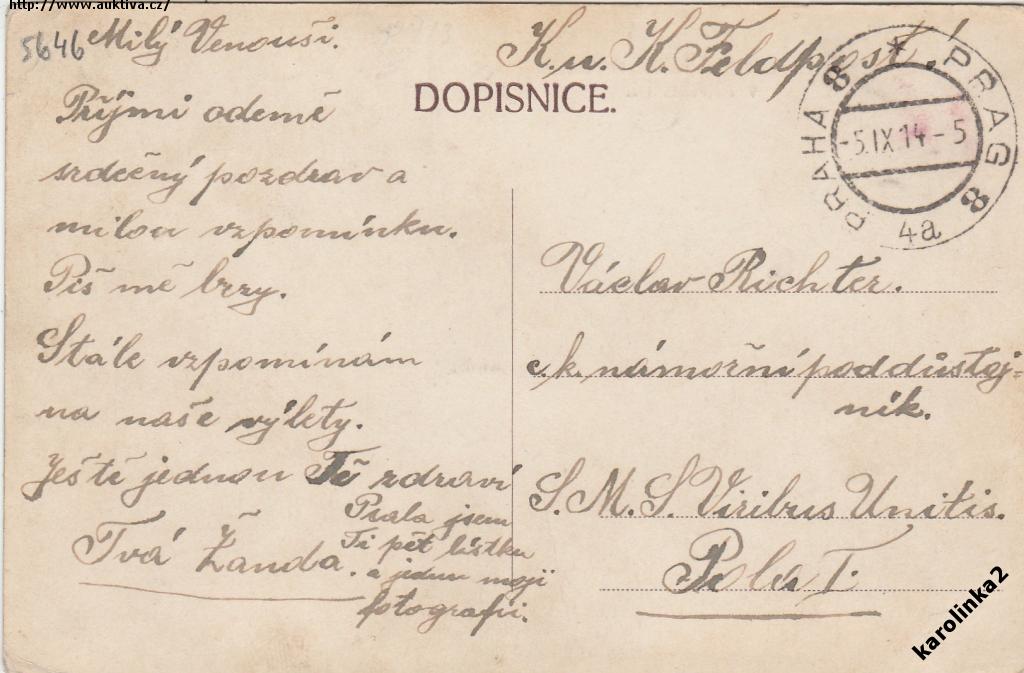 http://www.auktiva.cz/
5646
Milý Venouši.
Přijmi odemě
srdečný pozdrav a
milou vzpomínku.
Piš mě brzy.
Stále vzpomínám
na naše výlety.
Ještě jednou Tě zdraví
Tvá Žanda.
Psala jsem
Ti pět lístku
a jednu moji
fotografii.
K. u. K. Feldpost!
DOPISNICE.
* PRAG 8
PRAHA 8
-5.IX 14-5
4a
Václav Richter.
c. k. námořní poddůstoj=
ník.
S. M. S. Viribus Unitis.
Pola I.
karolinka2